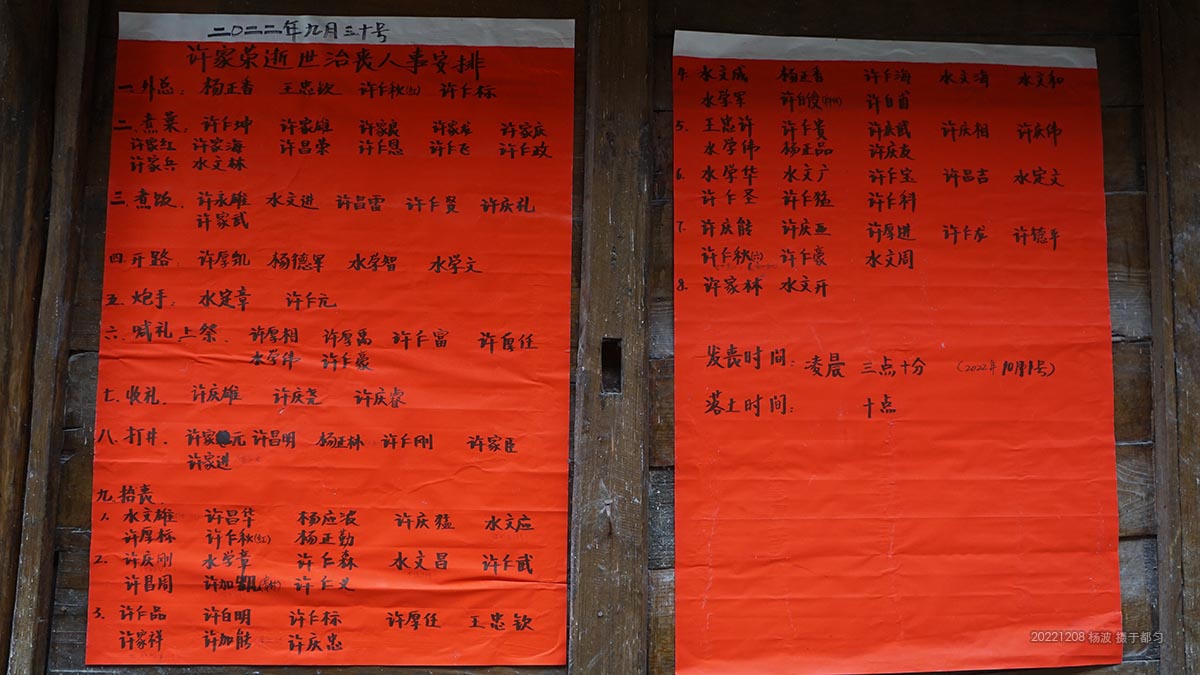 二〇二二年九月三十号
许家荣逝世治丧人事安排
一.外总: 杨正香 王忠钦 许乍秋(红) 许乍标
二.煮菜: 许乍坤 许家雄 许家良 许家龙 许家庆
许家红 许家海 许昌荣 许乍恩 许乍飞 许乍政
许家兵 水文林
三.煮饭. 许永雄 水文进 许昌雷 许乍贤 许庆礼
许家武
四.开路. 许厚凯 杨德军 水学智 水学文
五.炮手: 水定章 许乍元
六.喊礼上祭. 许厚相 许厚禹 许乍富 许厚任
水学伟 许乍豪
七.收礼. 许庆雄 许庆尧 许庆睿
八.打井. 许家元 许昌明 杨正林 许乍刚 许家臣
许家进
九.抬丧.
1. 水文雄 许昌华 杨应波 许庆猛 水文应
许厚标 许乍秋(红) 杨正勤
2. 许庆刚 水学章 许乍森 水文昌 许乍武
许昌周 许加凯 许乍义
3. 许乍品 许白明 许乍标 许厚任 王忠钦
许家祥 许加能 许庆忠
4. 水文成 杨正香 许乍海 水文海 水文和
水学军 许白俊 许白首
5. 王忠许 许乍贵 许庆武 许庆相 许庆伟
水学伟 杨正品 许庆友
6. 水学华 水文广 许乍宝 许昌吉 水定文
许乍圣 许乍猛 许乍科
7. 许庆能 许庆亚 许厚进 许乍龙 许德平
许乍秋 许乍豪 水文周
8. 许家林 水文开
发丧时间: 凌晨 三点十分 (2022年10月1号)
落土时间: 十点
20221208 杨波 摄于都匀